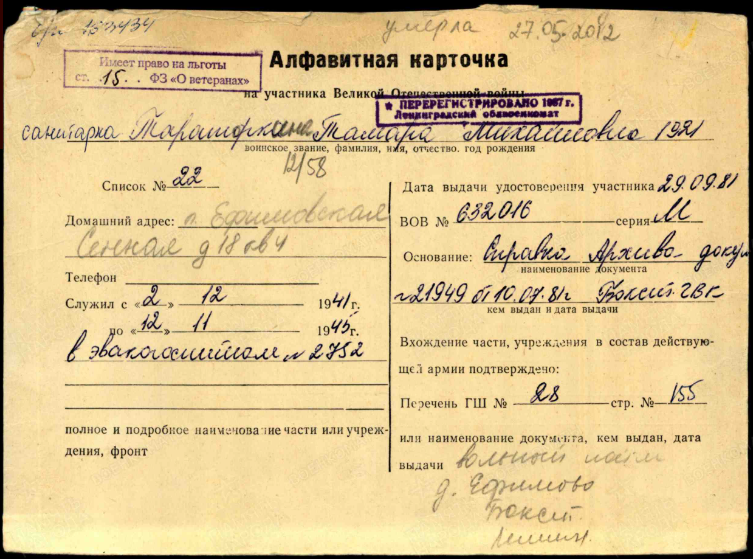 умерла 27.05.2012
Имеет право на льготы
ст. 15. ФЗ «О ветеранах»
Алфавитная карточка
на участника Великой Отечественной войны
★ ПЕРЕРЕГИСТРИРОВАНО 1987 г.
Ленинградский облвоенкомат
санитарка Тамара Михайловна 1921
воинское звание, фамилия, имя, отчество, год рождения
12/58
Список № 22
Домашний адрес: п. Ефимовская
Сенная д 18 кв 4
Телефон
Служил с «2» 12 1941 г.
по «12» 11 1945 г.
в эвакогоспитале № 2752
полное и подробное наименование части или учреж-
дения, фронт
Дата выдачи удостоверения участника 29.09.81
ВОВ № 632016 серия М
Основание: Справка Архива докум
наименование документа
№ 21949 от 10.07.81г Боксит. ГВК
кем выдан и дата выдачи
Вхождение части, учреждения в состав действую-
щей армии подтверждено:
Перечень ГШ № 28 стр. № 155
или наименование документа, кем выдан, дата
выдачи вольный наем
д. Ефимово
Боксит.